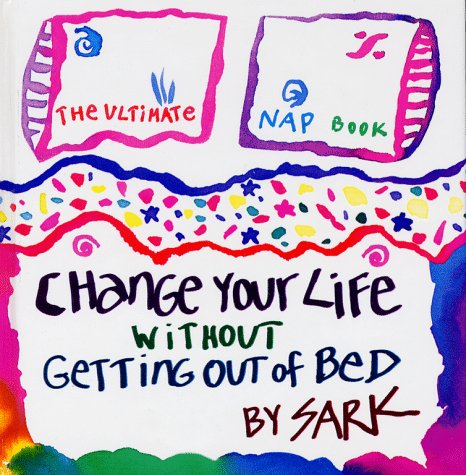 THE ULTIMATE NAP BOOK
CHANGE YOUR LIFE
WITHOUT
GETTING OUT OF BED
BY SARK